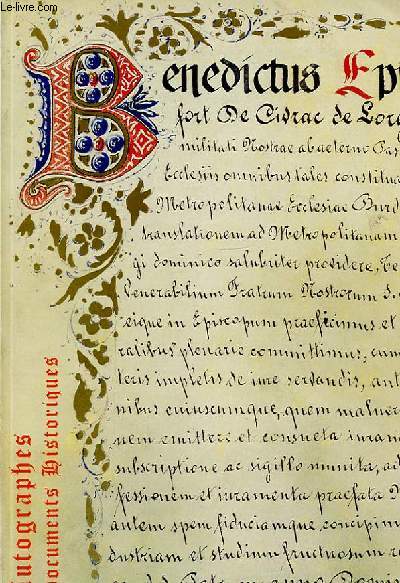 © Le-livre.com
Benedictus Ep
fort De Civrac de Lorg
militati Nostrae ab aeterno Pas
Ecclesiis omnibus tales constitua
Metropolitanae Ecclesiae Burd
translationem ad Metropolitanam
gi dominico salubriter providere, Te
Venerabilium Fratrum Nostrorum S.
eique in Episcopum praeficimus et
ralibus plenarie committimus; cum
teris impletis de iure servandis, ant
nibus cuiuscumque, quem maluer
nem emittere et consueta iuram
subscriptione ac sigillo munita, ad
fessionem et iuramenta praefata
autem spem, fiduciamque, concipim
dustriam et studium fructuosum
utographes
ocuments Historiques